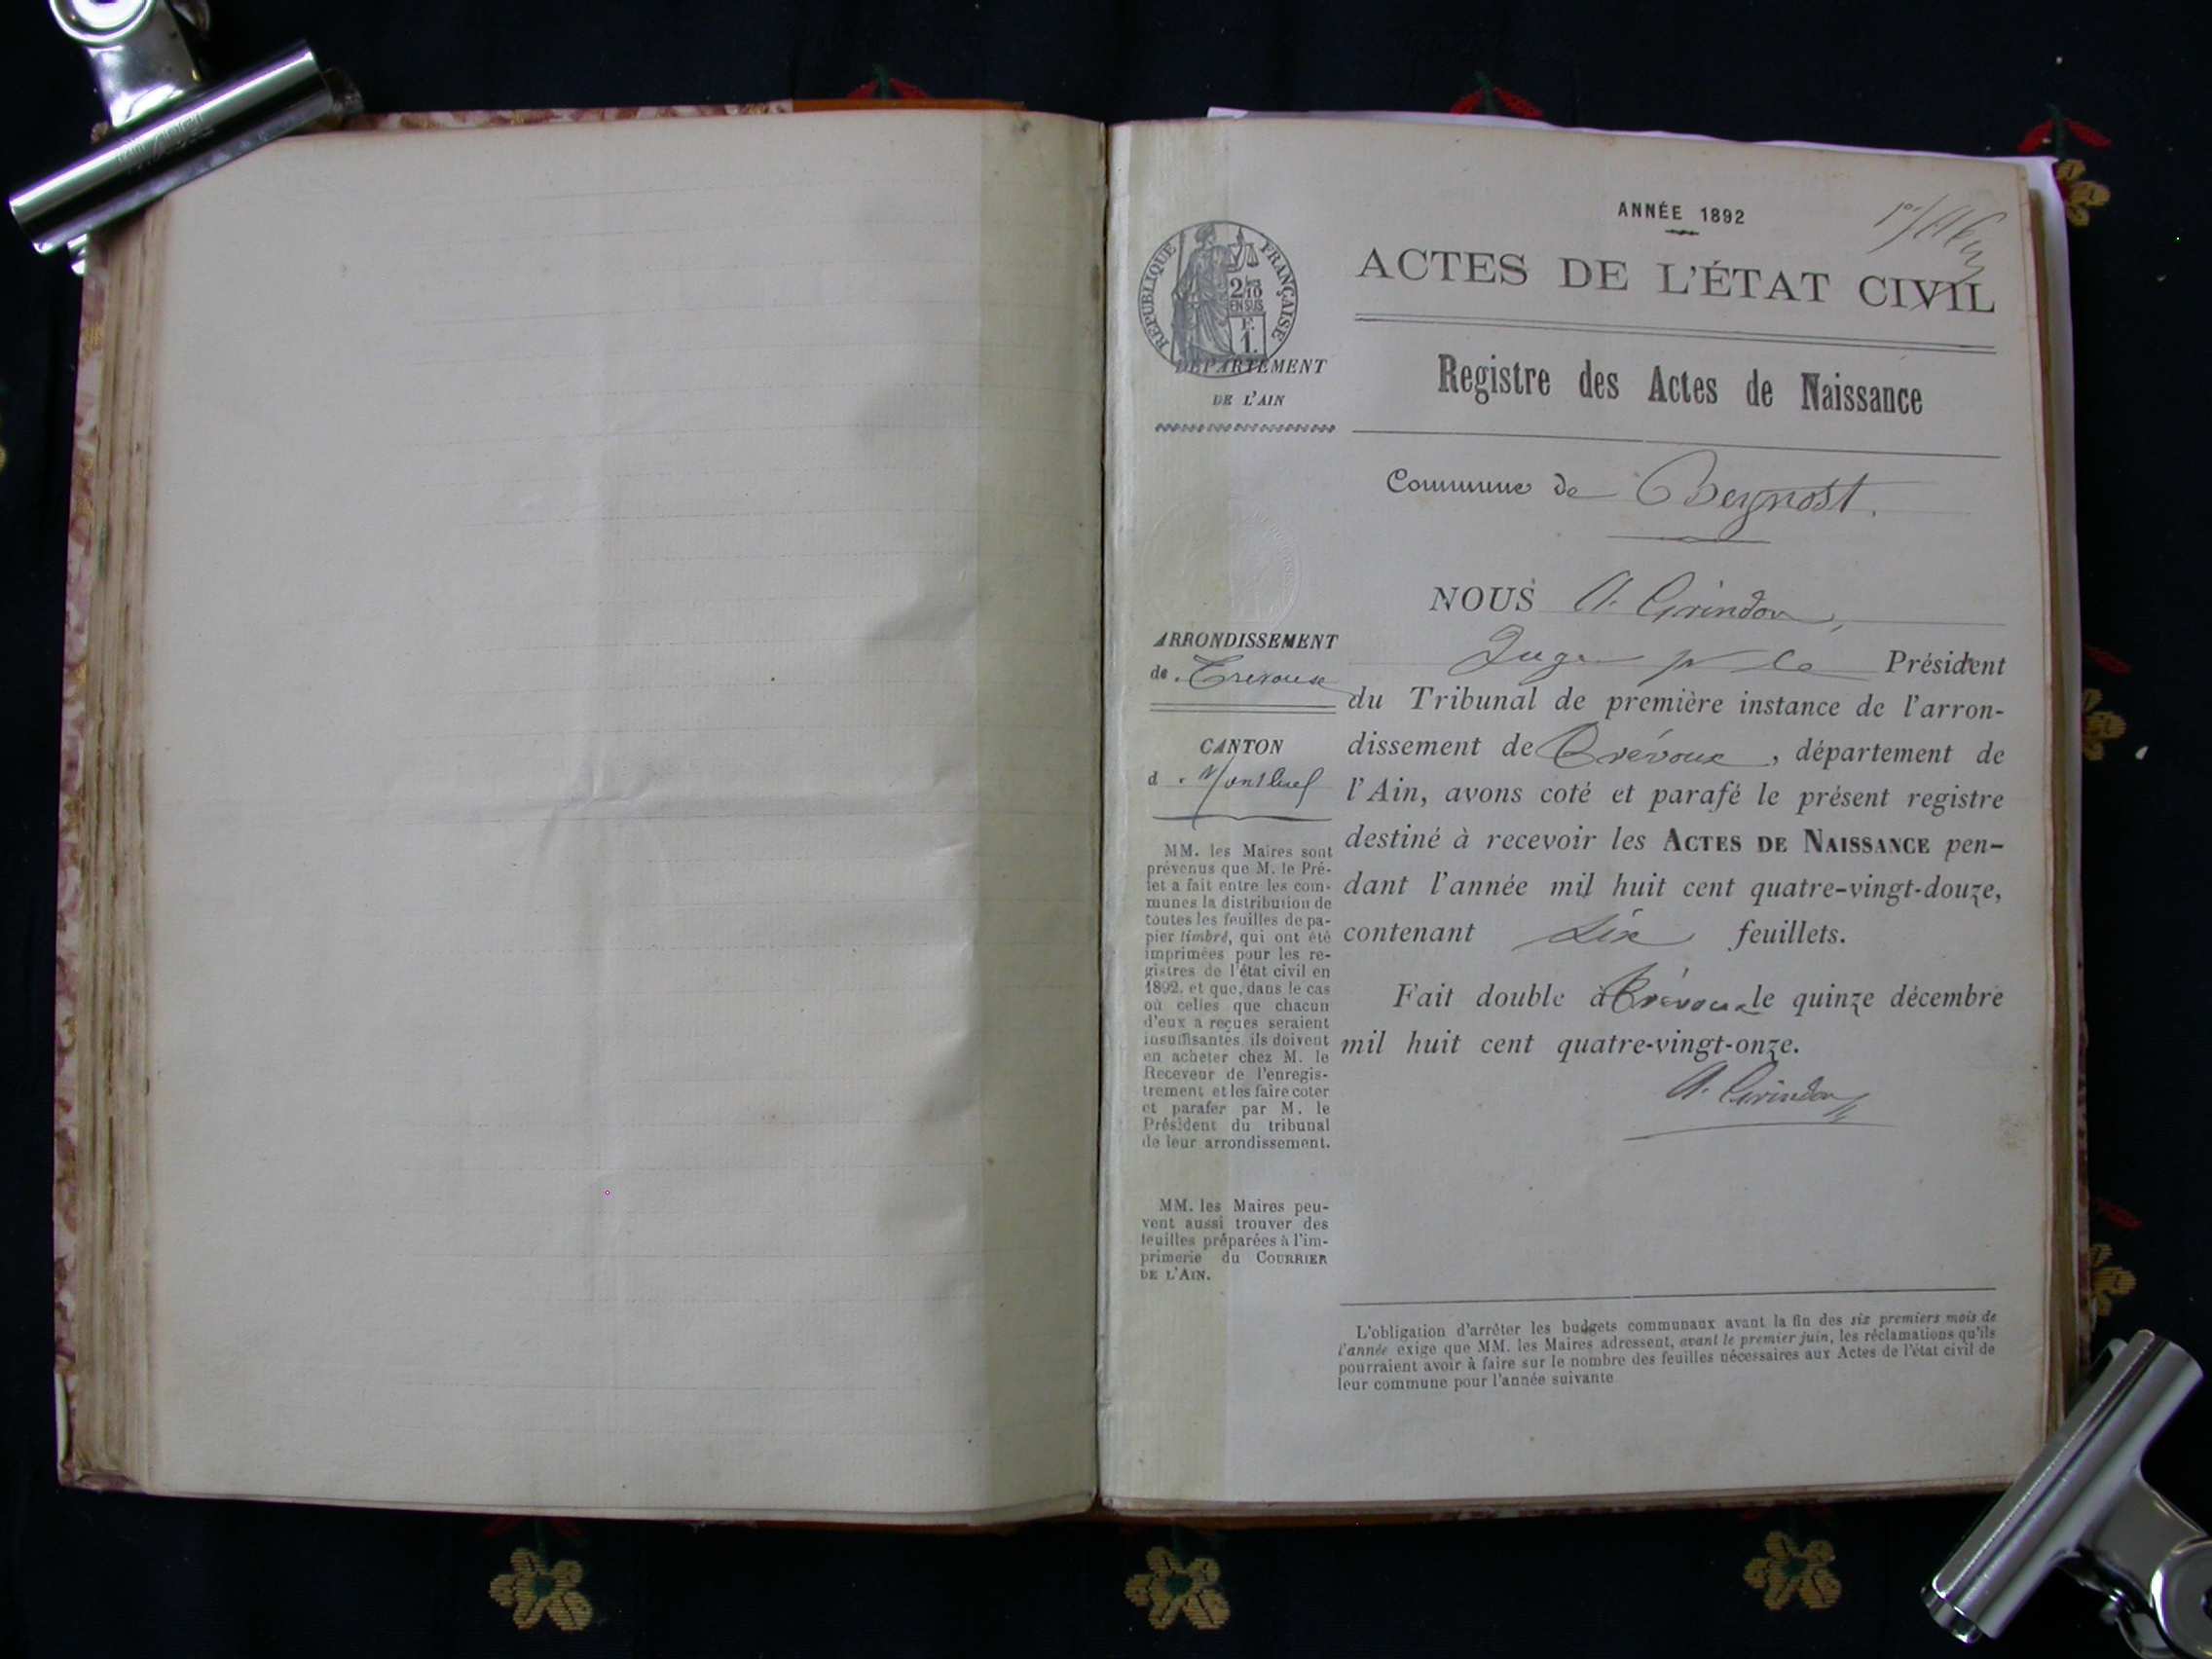 ANNÉE 1892
ACTES DE L'ÉTAT CIVIL
RÉPUBLIQUE FRANÇAISE
2/10
EN SUS
F.
1.
DÉPARTEMENT
DE L'AIN
Registre des Actes de Naissance
Commune de Beynost.
ARRONDISSEMENT
de Trévoux
CANTON
d Montluel
MM. les Maires sont
prévenus que M. le Pré-
fet a fait entre les com-
munes la distribution de
toutes les feuilles de pa-
pier timbré, qui ont été
imprimées pour les re-
gistres de l'état civil en
1892, et que, dans le cas
où celles que chacun
d'eux a reçues seraient
insuffisantes, ils doivent
en acheter chez M. le
Receveur de l'enregis-
trement et les faire coter
et parafer par M. le
Président du tribunal
de leur arrondissement.
MM. les Maires peu-
vent aussi trouver des
feuilles préparées à l'im-
primerie du COURRIER
DE L'AIN.
NOUS A. Grindon,
Juge pr le Président
du Tribunal de première instance de l'arron-
dissement de Trévoux, département de
l'Ain, avons coté et parafé le présent registre
destiné à recevoir les ACTES DE NAISSANCE pen-
dant l'année mil huit cent quatre-vingt-douze,
contenant feuillets.
Fait double à Trévoux le quinze décembre
mil huit cent quatre-vingt-onze.
A. Grindon
L'obligation d'arrêter les budgets communaux avant la fin des six premiers mois de
l'année exige que MM. les Maires adressent, avant le premier juin, les réclamations qu'ils
pourraient avoir à faire sur le nombre des feuilles nécessaires aux Actes de l'état civil de
leur commune pour l'année suivante